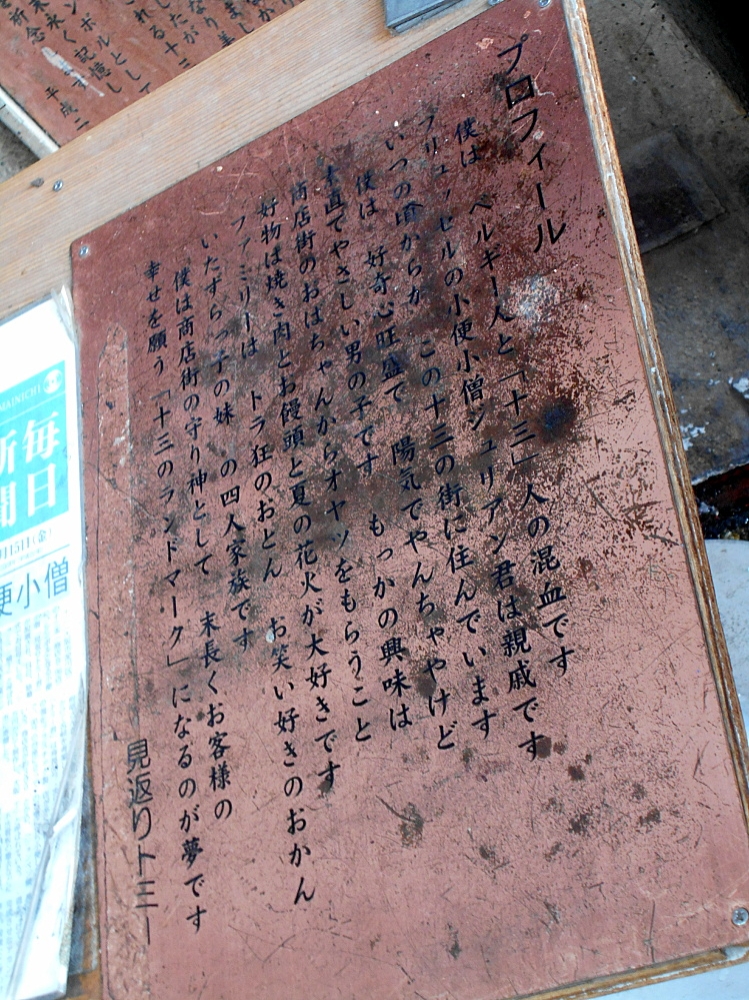 プロフィール
僕は ベルギー人と「十三」人の混血です
ブリュッセルの小便小僧ジュリアン君は親戚です
いつの頃からか この十三の街に住んでいます
僕は 好奇心旺盛で 陽気でやんちゃやけど
素直でやさしい男の子です もっかの興味は
商店街のおばちゃんからオヤツをもらうこと
好物は焼き肉とお饅頭と夏の花火が大好きです
ファミリーは トラ狂のおとん お笑い好きのおかん
いたずらっ子の妹 の四人家族です
僕は商店街の守り神として 末長くお客様の
幸せを願う「十三のランドマーク」になるのが夢です
見返りトミー
MAINICHI
毎日
新聞
月15日(金)
便小僧
ンボルとして
末永く記憶し
所念 平成二